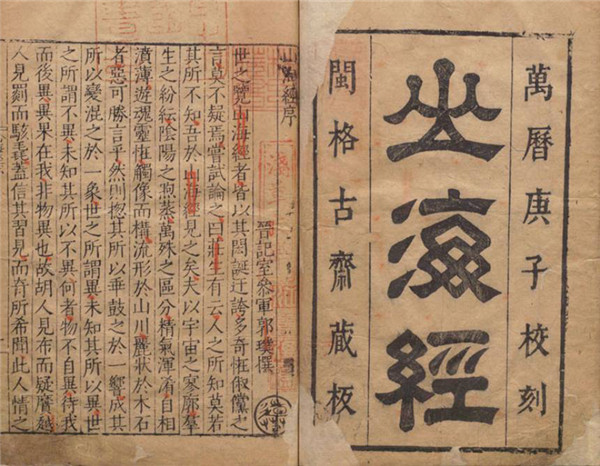 萬曆庚子校刻
山海經
閩格古齋藏板
山海經序
晉記室參軍郭璞撰
世之覽山海經者皆以其閎誕迂誇多奇怪俶儻之
言莫不疑焉嘗試論之曰莊生有云人之所知莫若
其所不知吾於山海經見之矣夫以宇宙之寥廓群
生之紛紜陰陽之煦蒸萬殊之區分精氣渾淆自相
濆薄遊魂靈怪觸像而構流形於山川麗狀於木石
者惡可勝言乎然則揔其所以乖鼓之於一響成其
所以變混之於一象世之所謂異未知其所以異世
之所謂不異未知其所以不異何者物不自異待我
而後異異果在我非物異也故胡人見布而疑黂越
人見罽而駭毳蓋信其習見而奇所希聞此人情之